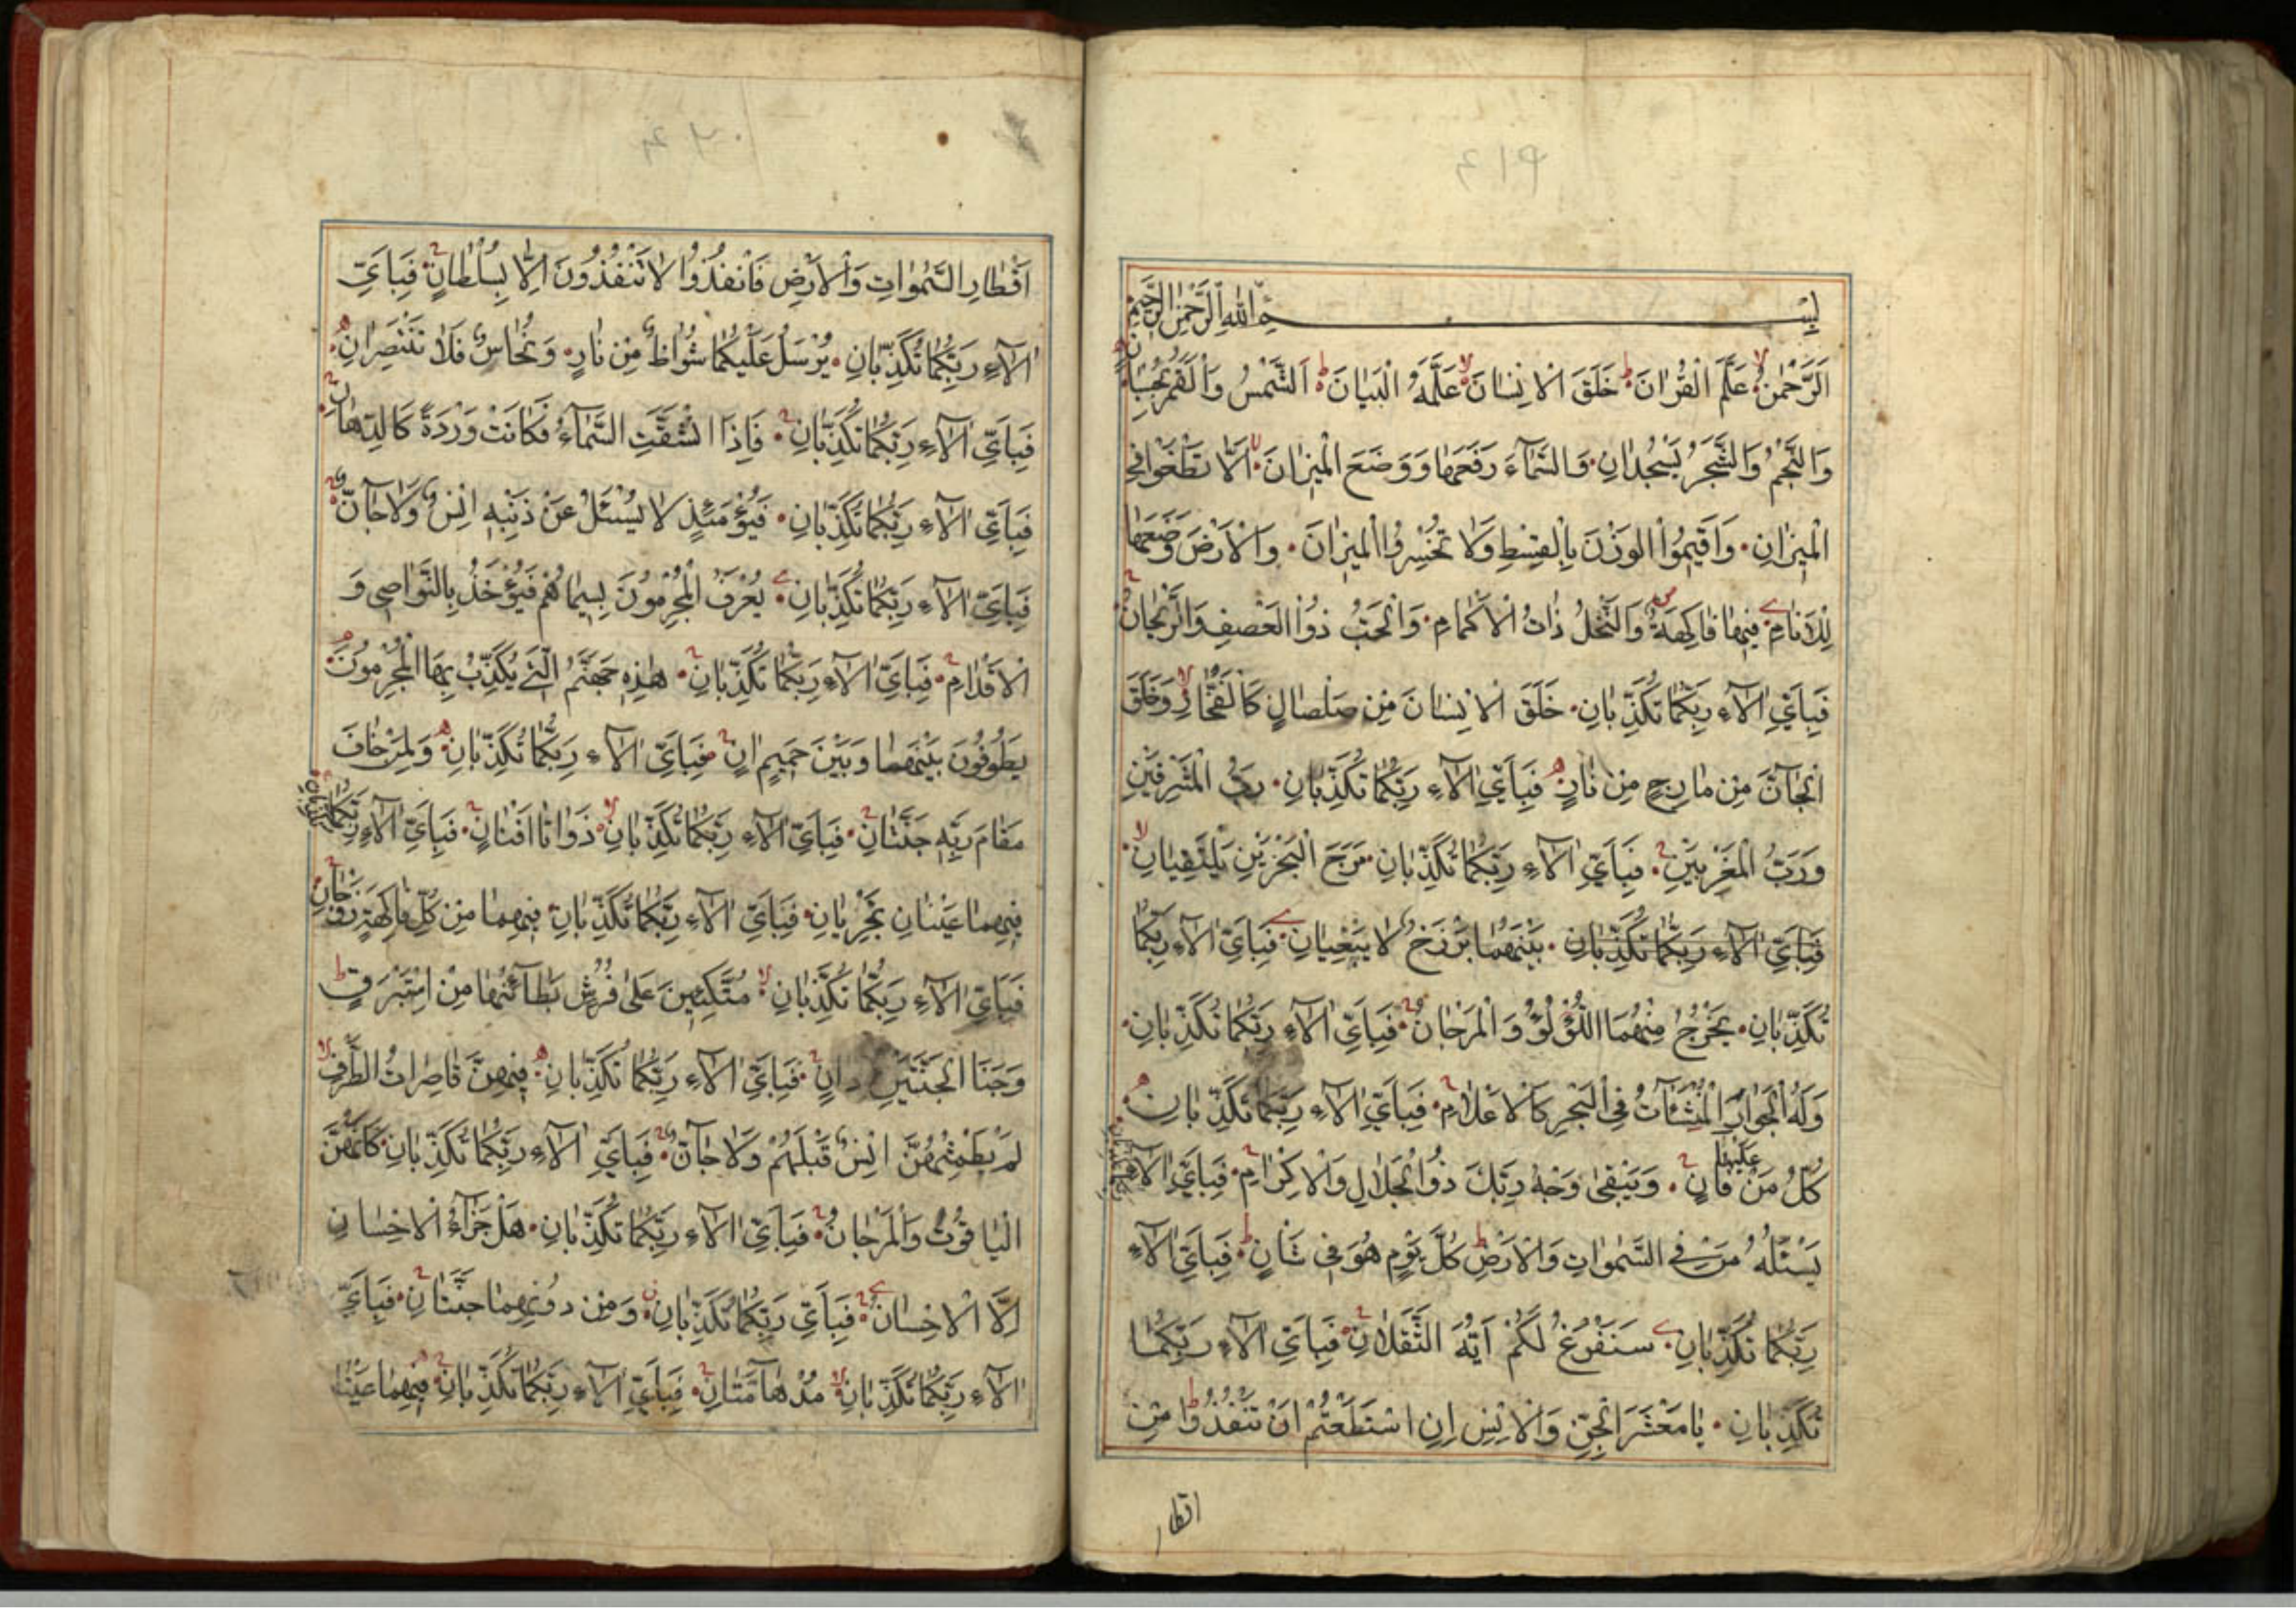 بِسْمِ اللهِ الرَّحْمٰنِ الرَّحِيمِ
الَرَّحْمٰنُ عَلَّمَ الْقُرْاٰنَ خَلَقَ الْاِنْسٰانَ عَلَّمَهُ الْبَيٰانَ اَلشَّمْسُ وَالْقَمَرُ بِحُسْبٰانٍ
وَالنَّجْمُ وَالشَّجَرُ يَسْجُدٰانِ وَالسَّمٰآءَ رَفَعَهٰا وَوَضَعَ الْمِيزٰانَ اَلّٰا تَطْغَوْا فِي
الْمِيزٰانِ وَاَقِيمُوا الْوَزْنَ بِالْقِسْطِ وَلٰا تُخْسِرُوا الْمِيزٰانَ وَالْاَرْضَ وَضَعَهٰا
لِلْاَنٰامِ فِيهٰا فٰاكِهَةٌ وَالنَّخْلُ ذٰاتُ الْاَكْمٰامِ وَالْحَبُّ ذُوا الْعَصْفِ وَالرَّيْحٰانُ
فَبِاَيِّ اٰلٰآءِ رَبِّكُمٰا تُكَذِّبٰانِ خَلَقَ الْاِنْسٰانَ مِنْ صَلْصٰالٍ كَالْفَخّٰارِ وَخَلَقَ
الْجٰآنَّ مِنْ مٰارِجٍ مِنْ نٰارٍ فَبِاَيِّ اٰلٰآءِ رَبِّكُمٰا تُكَذِّبٰانِ رَبُّ الْمَشْرِقَيْنِ
وَرَبُّ الْمَغْرِبَيْنِ فَبِاَيِّ اٰلٰآءِ رَبِّكُمٰا تُكَذِّبٰانِ مَرَجَ الْبَحْرَيْنِ يَلْتَقِيٰانِ
فَبِاَيِّ اٰلٰآءِ رَبِّكُمٰا تُكَذِّبٰانِ بَيْنَهُمٰا بَرْزَخٌ لٰا يَبْغِيٰانِ فَبِاَيِّ اٰلٰآءِ رَبِّكُمٰا
تُكَذِّبٰانِ يَخْرُجُ مِنْهُمَا اللُّؤْلُؤُ وَالْمَرْجٰانُ فَبِاَيِّ اٰلٰآءِ رَبِّكُمٰا تُكَذِّبٰانِ
وَلَهُ الْجَوٰارِ الْمُنْشَئٰاتُ فِي الْبَحْرِ كَالْاَعْلٰامِ فَبِاَيِّ اٰلٰآءِ رَبِّكُمٰا تُكَذِّبٰانِ
كُلُّ مَنْ عَلَيْهٰا فٰانٍ وَيَبْقٰى وَجْهُ رَبِّكَ ذُوا الْجَلٰالِ وَالْاِكْرٰامِ فَبِاَيِّ اٰلٰآءِ رَبِّكُمٰا تُكَذِّبٰانِ
يَسْئَلُهُ مَنْ فِي السَّمٰوٰاتِ وَالْاَرْضِ كُلَّ يَوْمٍ هُوَ فِي شَانٍ فَبِاَيِّ اٰلٰآءِ
رَبِّكُمٰا تُكَذِّبٰانِ سَنَفْرُغُ لَكُمْ اَيُّهَ الثَّقَلٰانِ فَبِاَيِّ اٰلٰآءِ رَبِّكُمٰا
تُكَذِّبٰانِ يٰا مَعْشَرَ الْجِنِّ وَالْاِنْسِ اِنِ اسْتَطَعْتُمْ اَنْ تَنْفُذُوا مِنْ
اقطار
اَقْطٰارِ السَّمٰوٰاتِ وَالْاَرْضِ فَانْفُذُوا لٰا تَنْفُذُونَ اِلّٰا بِسُلْطٰانٍ فَبِاَيِّ
اٰلٰآءِ رَبِّكُمٰا تُكَذِّبٰانِ يُرْسَلُ عَلَيْكُمٰا شُوٰاظٌ مِنْ نٰارٍ وَنُحٰاسٌ فَلٰا تَنْتَصِرٰانِ
فَبِاَيِّ اٰلٰآءِ رَبِّكُمٰا تُكَذِّبٰانِ فَاِذَا انْشَقَّتِ السَّمٰآءُ فَكٰانَتْ وَرْدَةً كَالدِّهٰانِ
فَبِاَيِّ اٰلٰآءِ رَبِّكُمٰا تُكَذِّبٰانِ فَيَوْمَئِذٍ لٰا يُسْئَلُ عَنْ ذَنْبِهِ اِنْسٌ وَلٰا جٰآنٌّ
فَبِاَيِّ اٰلٰآءِ رَبِّكُمٰا تُكَذِّبٰانِ يُعْرَفُ الْمُجْرِمُونَ بِسِيمٰاهُمْ فَيُؤْخَذُ بِالنَّوٰاصِي وَ
الْاَقْدٰامِ فَبِاَيِّ اٰلٰآءِ رَبِّكُمٰا تُكَذِّبٰانِ هٰذِهِ جَهَنَّمُ الَّتِي يُكَذِّبُ بِهَا الْمُجْرِمُونَ
يَطُوفُونَ بَيْنَهٰا وَبَيْنَ حَمِيمٍ اٰنٍ فَبِاَيِّ اٰلٰآءِ رَبِّكُمٰا تُكَذِّبٰانِ وَلِمَنْ خٰافَ
مَقٰامَ رَبِّهِ جَنَّتٰانِ فَبِاَيِّ اٰلٰآءِ رَبِّكُمٰا تُكَذِّبٰانِ ذَوٰاتٰا اَفْنٰانٍ فَبِاَيِّ اٰلٰآءِ رَبِّكُمٰا تُكَذِّبٰانِ
فِيهِمٰا عَيْنٰانِ تَجْرِيٰانِ فَبِاَيِّ اٰلٰآءِ رَبِّكُمٰا تُكَذِّبٰانِ فِيهِمٰا مِنْ كُلِّ فٰاكِهَةٍ زَوْجٰانِ
فَبِاَيِّ اٰلٰآءِ رَبِّكُمٰا تُكَذِّبٰانِ مُتَّكِئِينَ عَلٰى فُرُشٍ بَطٰآئِنُهٰا مِنْ اِسْتَبْرَقٍ
وَجَنَا الْجَنَّتَيْنِ دٰانٍ فَبِاَيِّ اٰلٰآءِ رَبِّكُمٰا تُكَذِّبٰانِ فِيهِنَّ قٰاصِرٰاتُ الطَّرْفِ
لَمْ يَطْمِثْهُنَّ اِنْسٌ قَبْلَهُمْ وَلٰا جٰآنٌّ فَبِاَيِّ اٰلٰآءِ رَبِّكُمٰا تُكَذِّبٰانِ كَاَنَّهُنَّ
الْيٰاقُوتُ وَالْمَرْجٰانُ فَبِاَيِّ اٰلٰآءِ رَبِّكُمٰا تُكَذِّبٰانِ هَلْ جَزٰآءُ الْاِحْسٰانِ
اِلَّا الْاِحْسٰانُ فَبِاَيِّ رَبِّكُمٰا تُكَذِّبٰانِ وَمِنْ دُونِهِمٰا جَنَّتٰانِ فَبِاَيِّ
اٰلٰآءِ رَبِّكُمٰا تُكَذِّبٰانِ مُدْهٰآمَّتٰانِ فَبِاَيِّ اٰلٰآءِ رَبِّكُمٰا تُكَذِّبٰانِ فِيهِمٰا عَيْنٰا